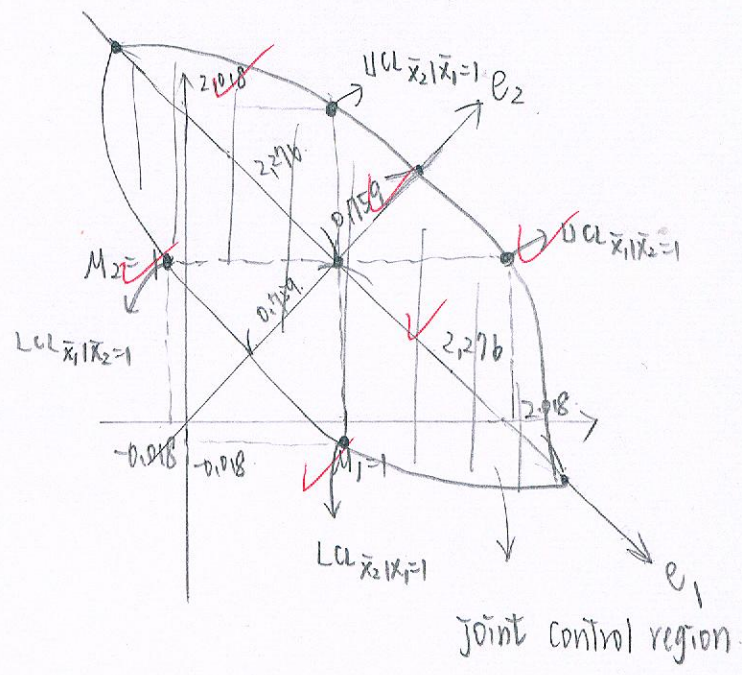 2,018
UCL x̄2|x̄1=1
e2
2,276
0,759
UCL x̄1|x̄2=1
M2=1
0,759
LCL x̄1|x̄2=1
2,276
2.018
-0,018
-0,018
M1=1
LCL x̄2|x1=1
e1
joint control region